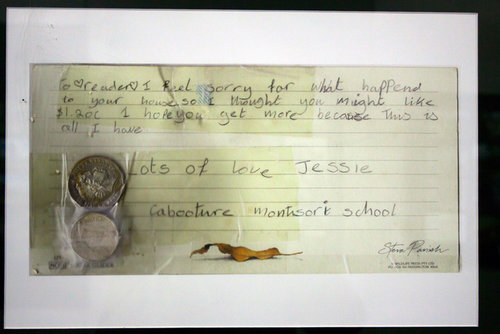 To ♡reader♡ I feel sorry for what happend
to your house, so I thought you might like
$1.20c I hope you get more because This is
all I have
Lots of love Jessie
Cabooture montsori school
Steve Parish